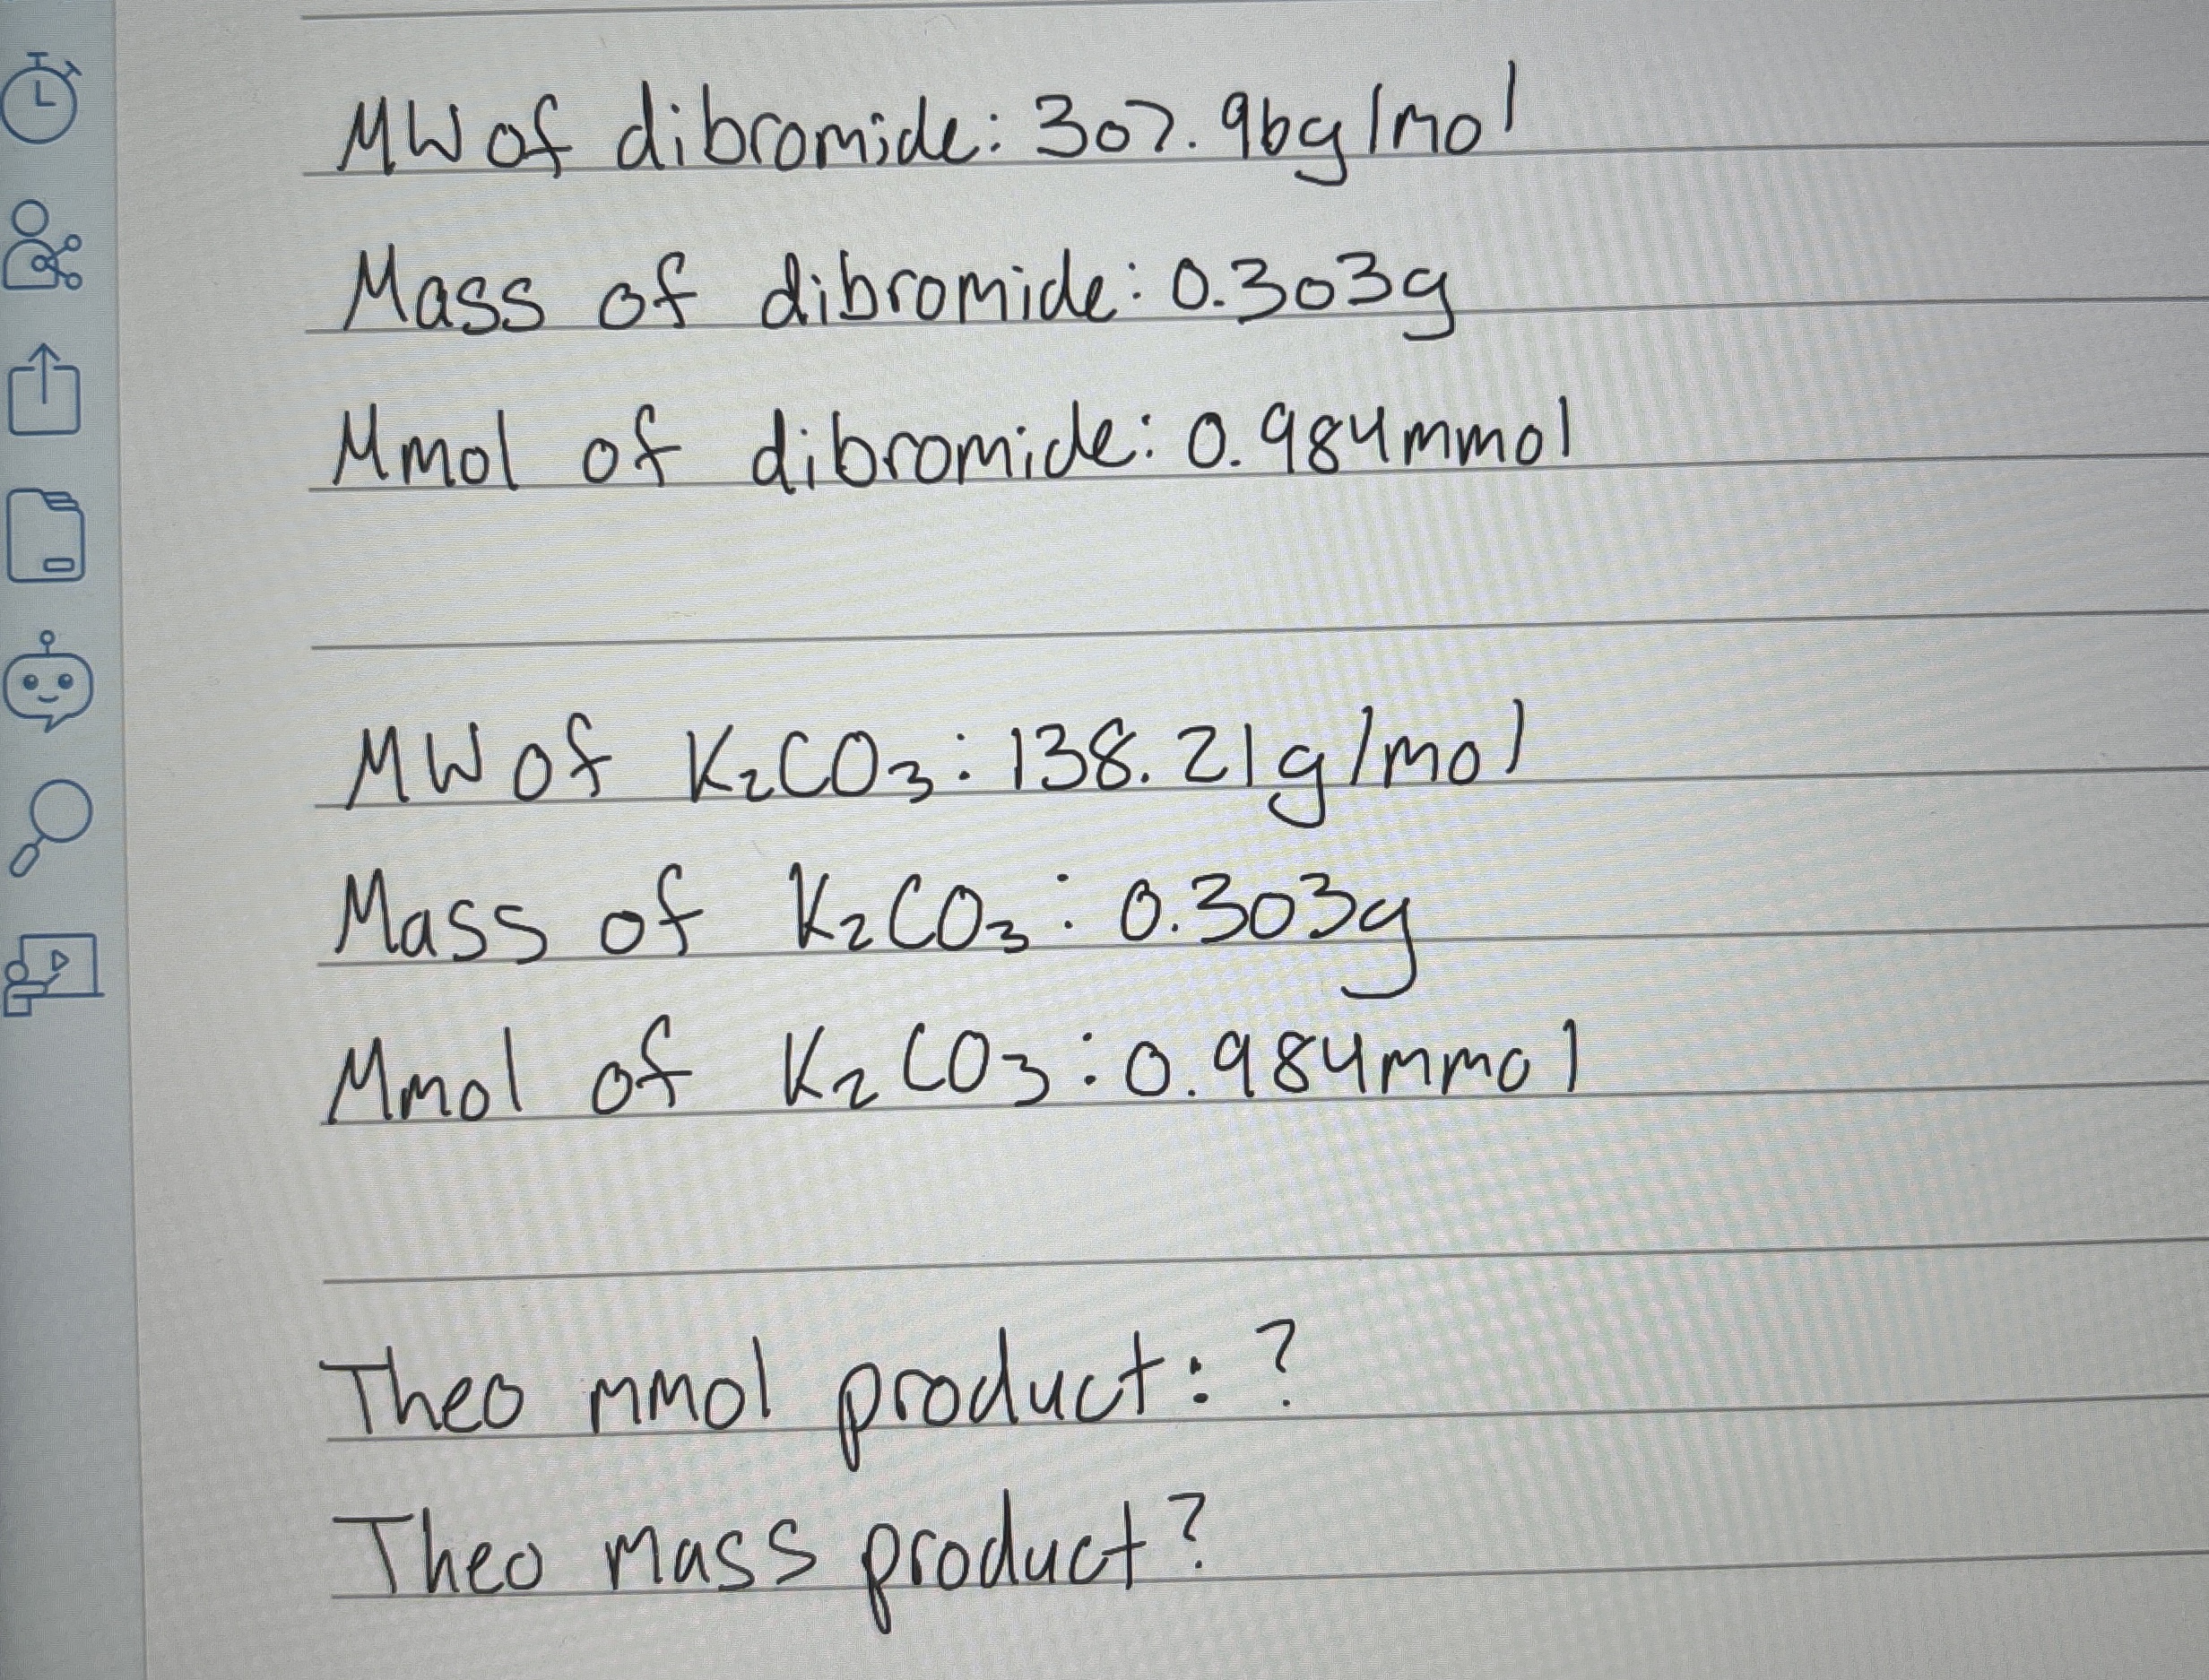 MW of dibromide: 307.96g/mol
Mass of dibromide: 0.303g
Mmol of dibromide: 0.984mmol
MW of K₂CO₃: 138.21g/mol
Mass of K₂CO₃: 0.303g
Mmol of K₂CO₃: 0.984mmol
Theo mmol product: ?
Theo mass product?